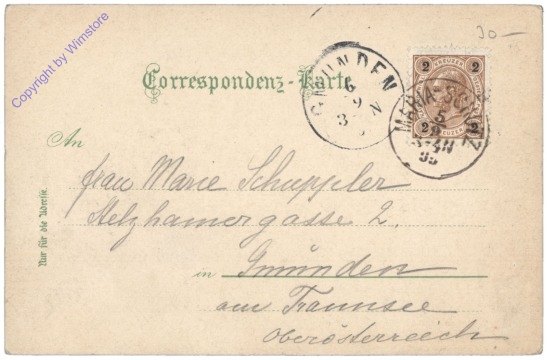 30 —
Copyright by Wimstore
Correspondenz-Karte
GMUNDEN
6
9
3
N
2 KREUZER 2
2 KREUZER 2
MARIA-SCHUTZ
5
9
3-4N
99
An
Frau Marie Schuppler
Stelzhamergasse 2.
in Gmünden
am Traunsee
Oberösterreich.
Nur für die Adresse.